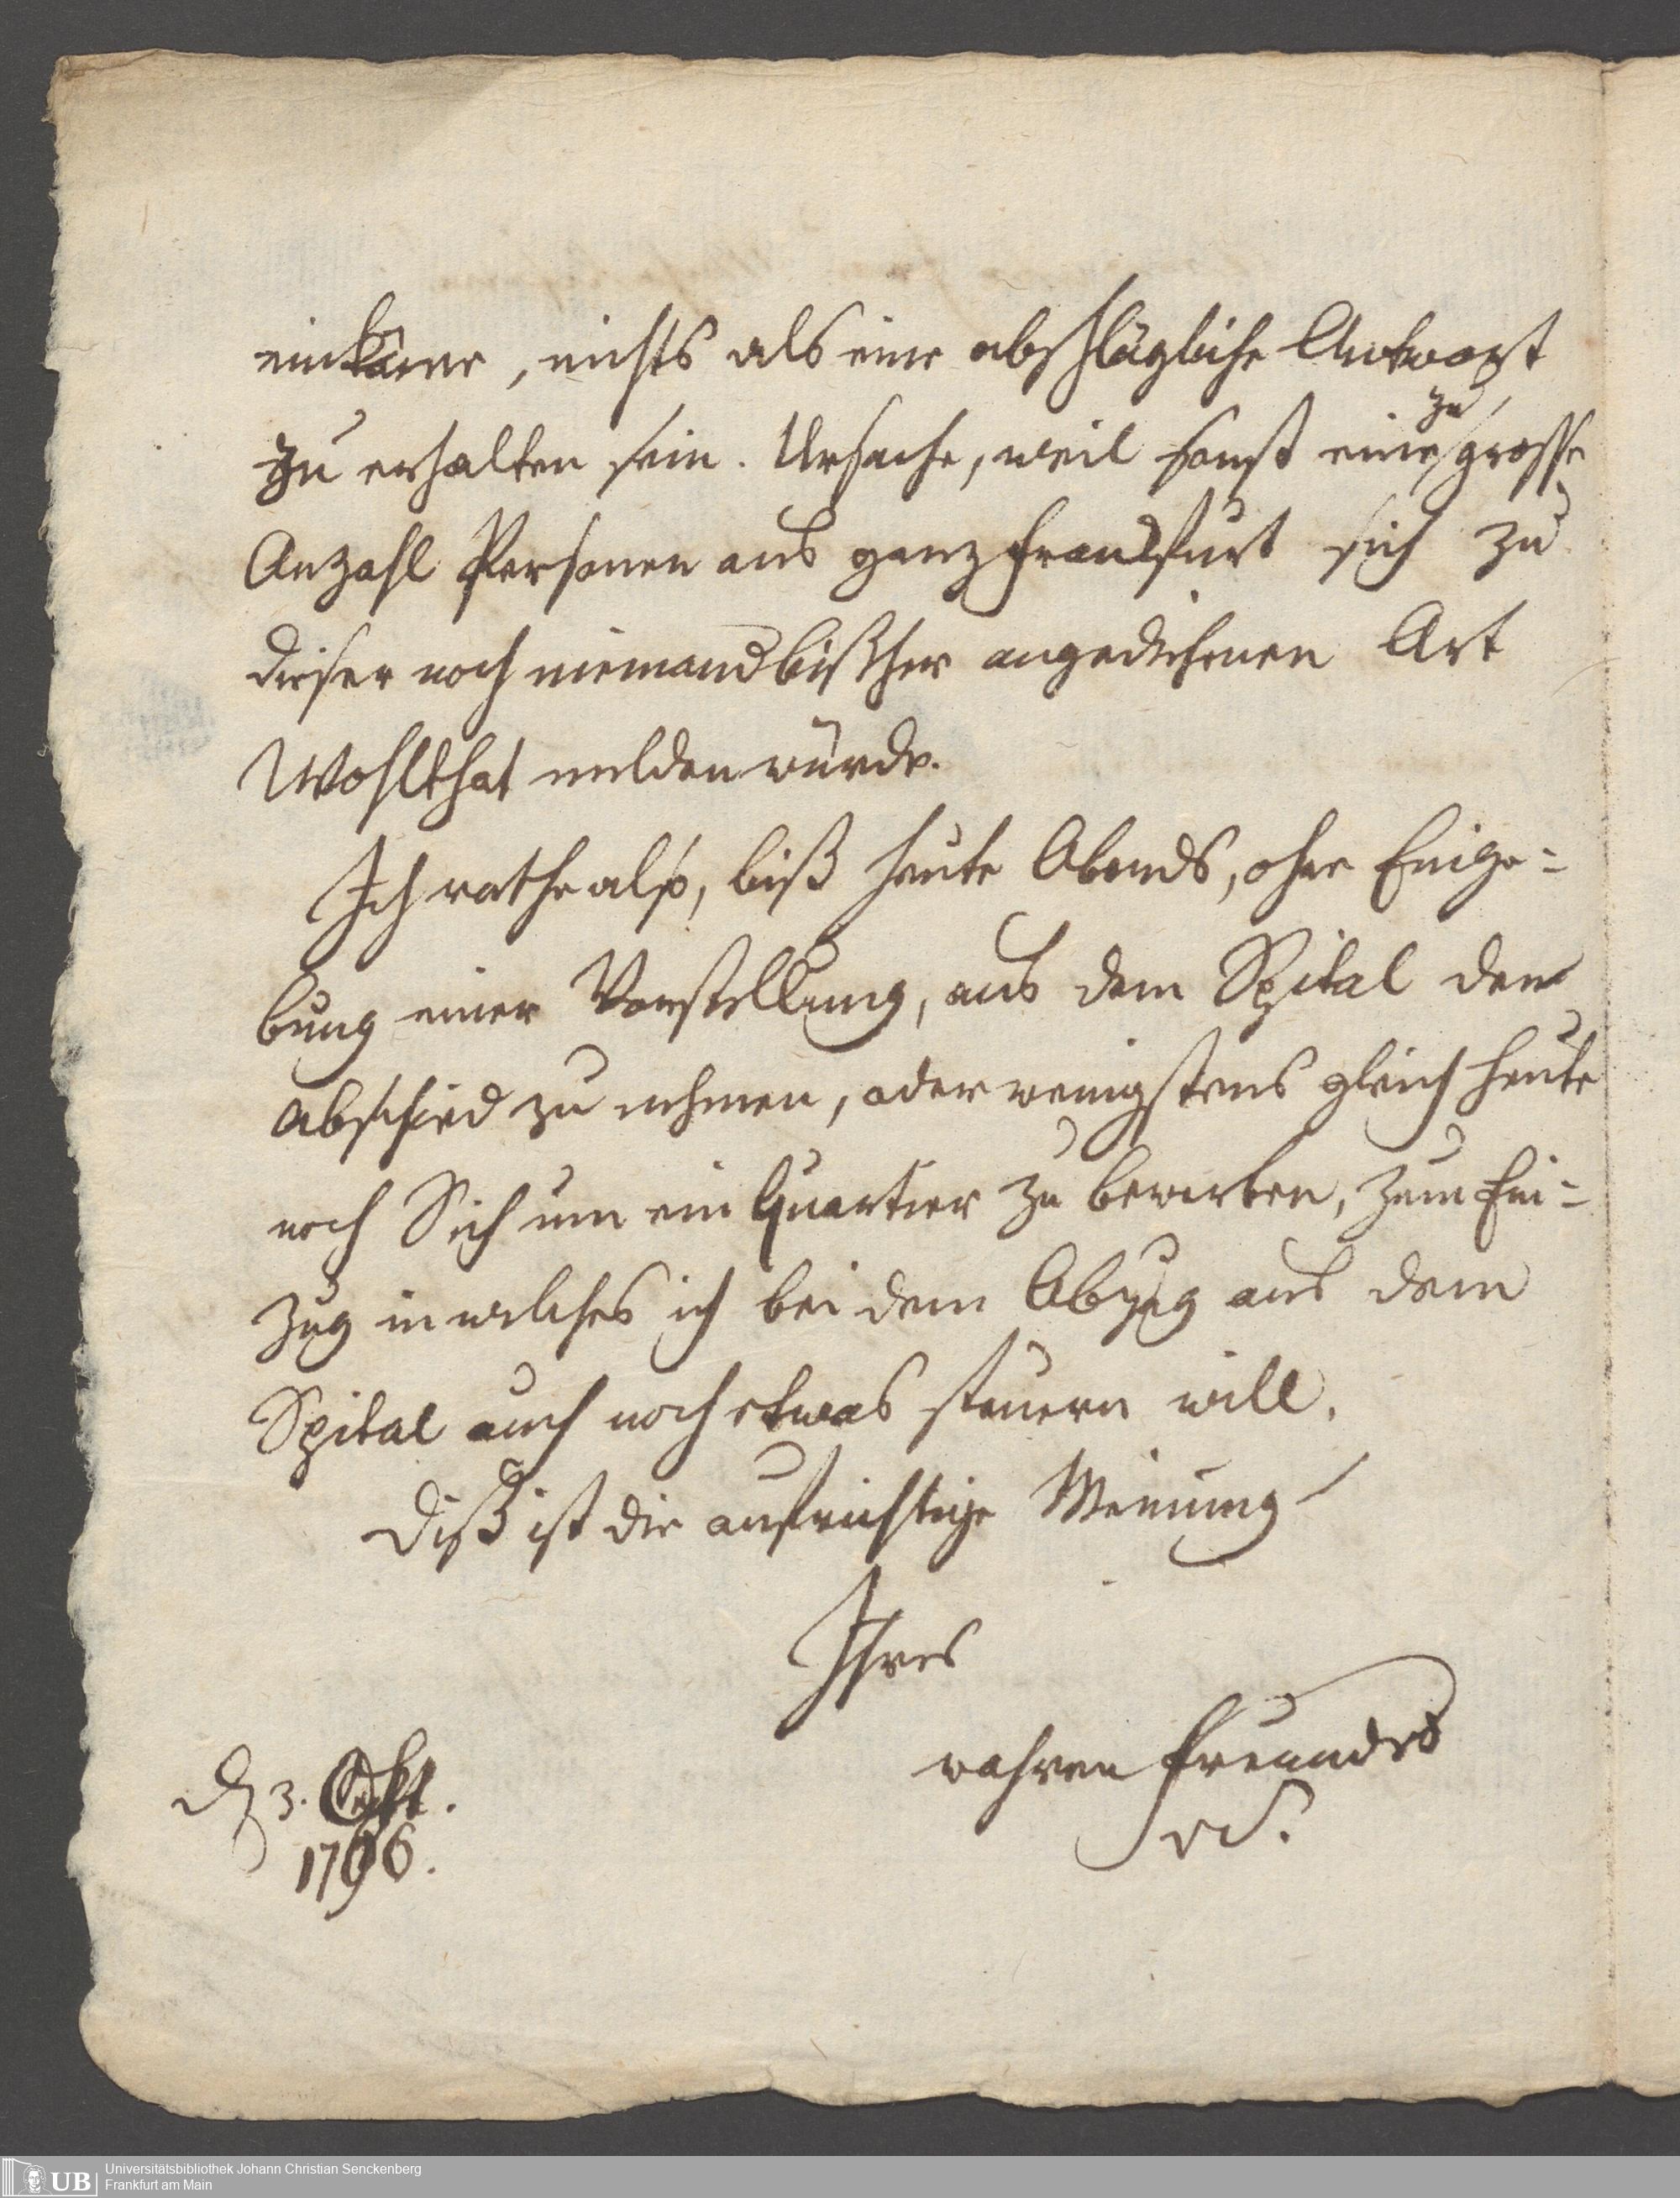 einkäme, nichts als eine abschlägliche Antwort
zu erhalten sein. Ursache, weil sonst eine zu grosse
Anzahl Personen aus ganz Frankfurt sich zu
dieser noch niemand bißher angediehenen Art
Wohlthat melden würde.
Ich rathe also, biß heute Abends, ohne Einge=
bung einer Vorstellung, aus dem Spital den
Abschied zu nehmen, oder wenigstens gleich heute
noch Sich um ein Quartier zu bewerben, zum Ein=
zug in welches ich bei dem Abzug aus dem
Spital auch noch etwas steuern will.
Diß ist die aufrichtige Meinung
Ihres
wahren Freundes
d 3.
1796.
UB
Universitätsbibliothek Johann Christian Senckenberg
Frankfurt am Main